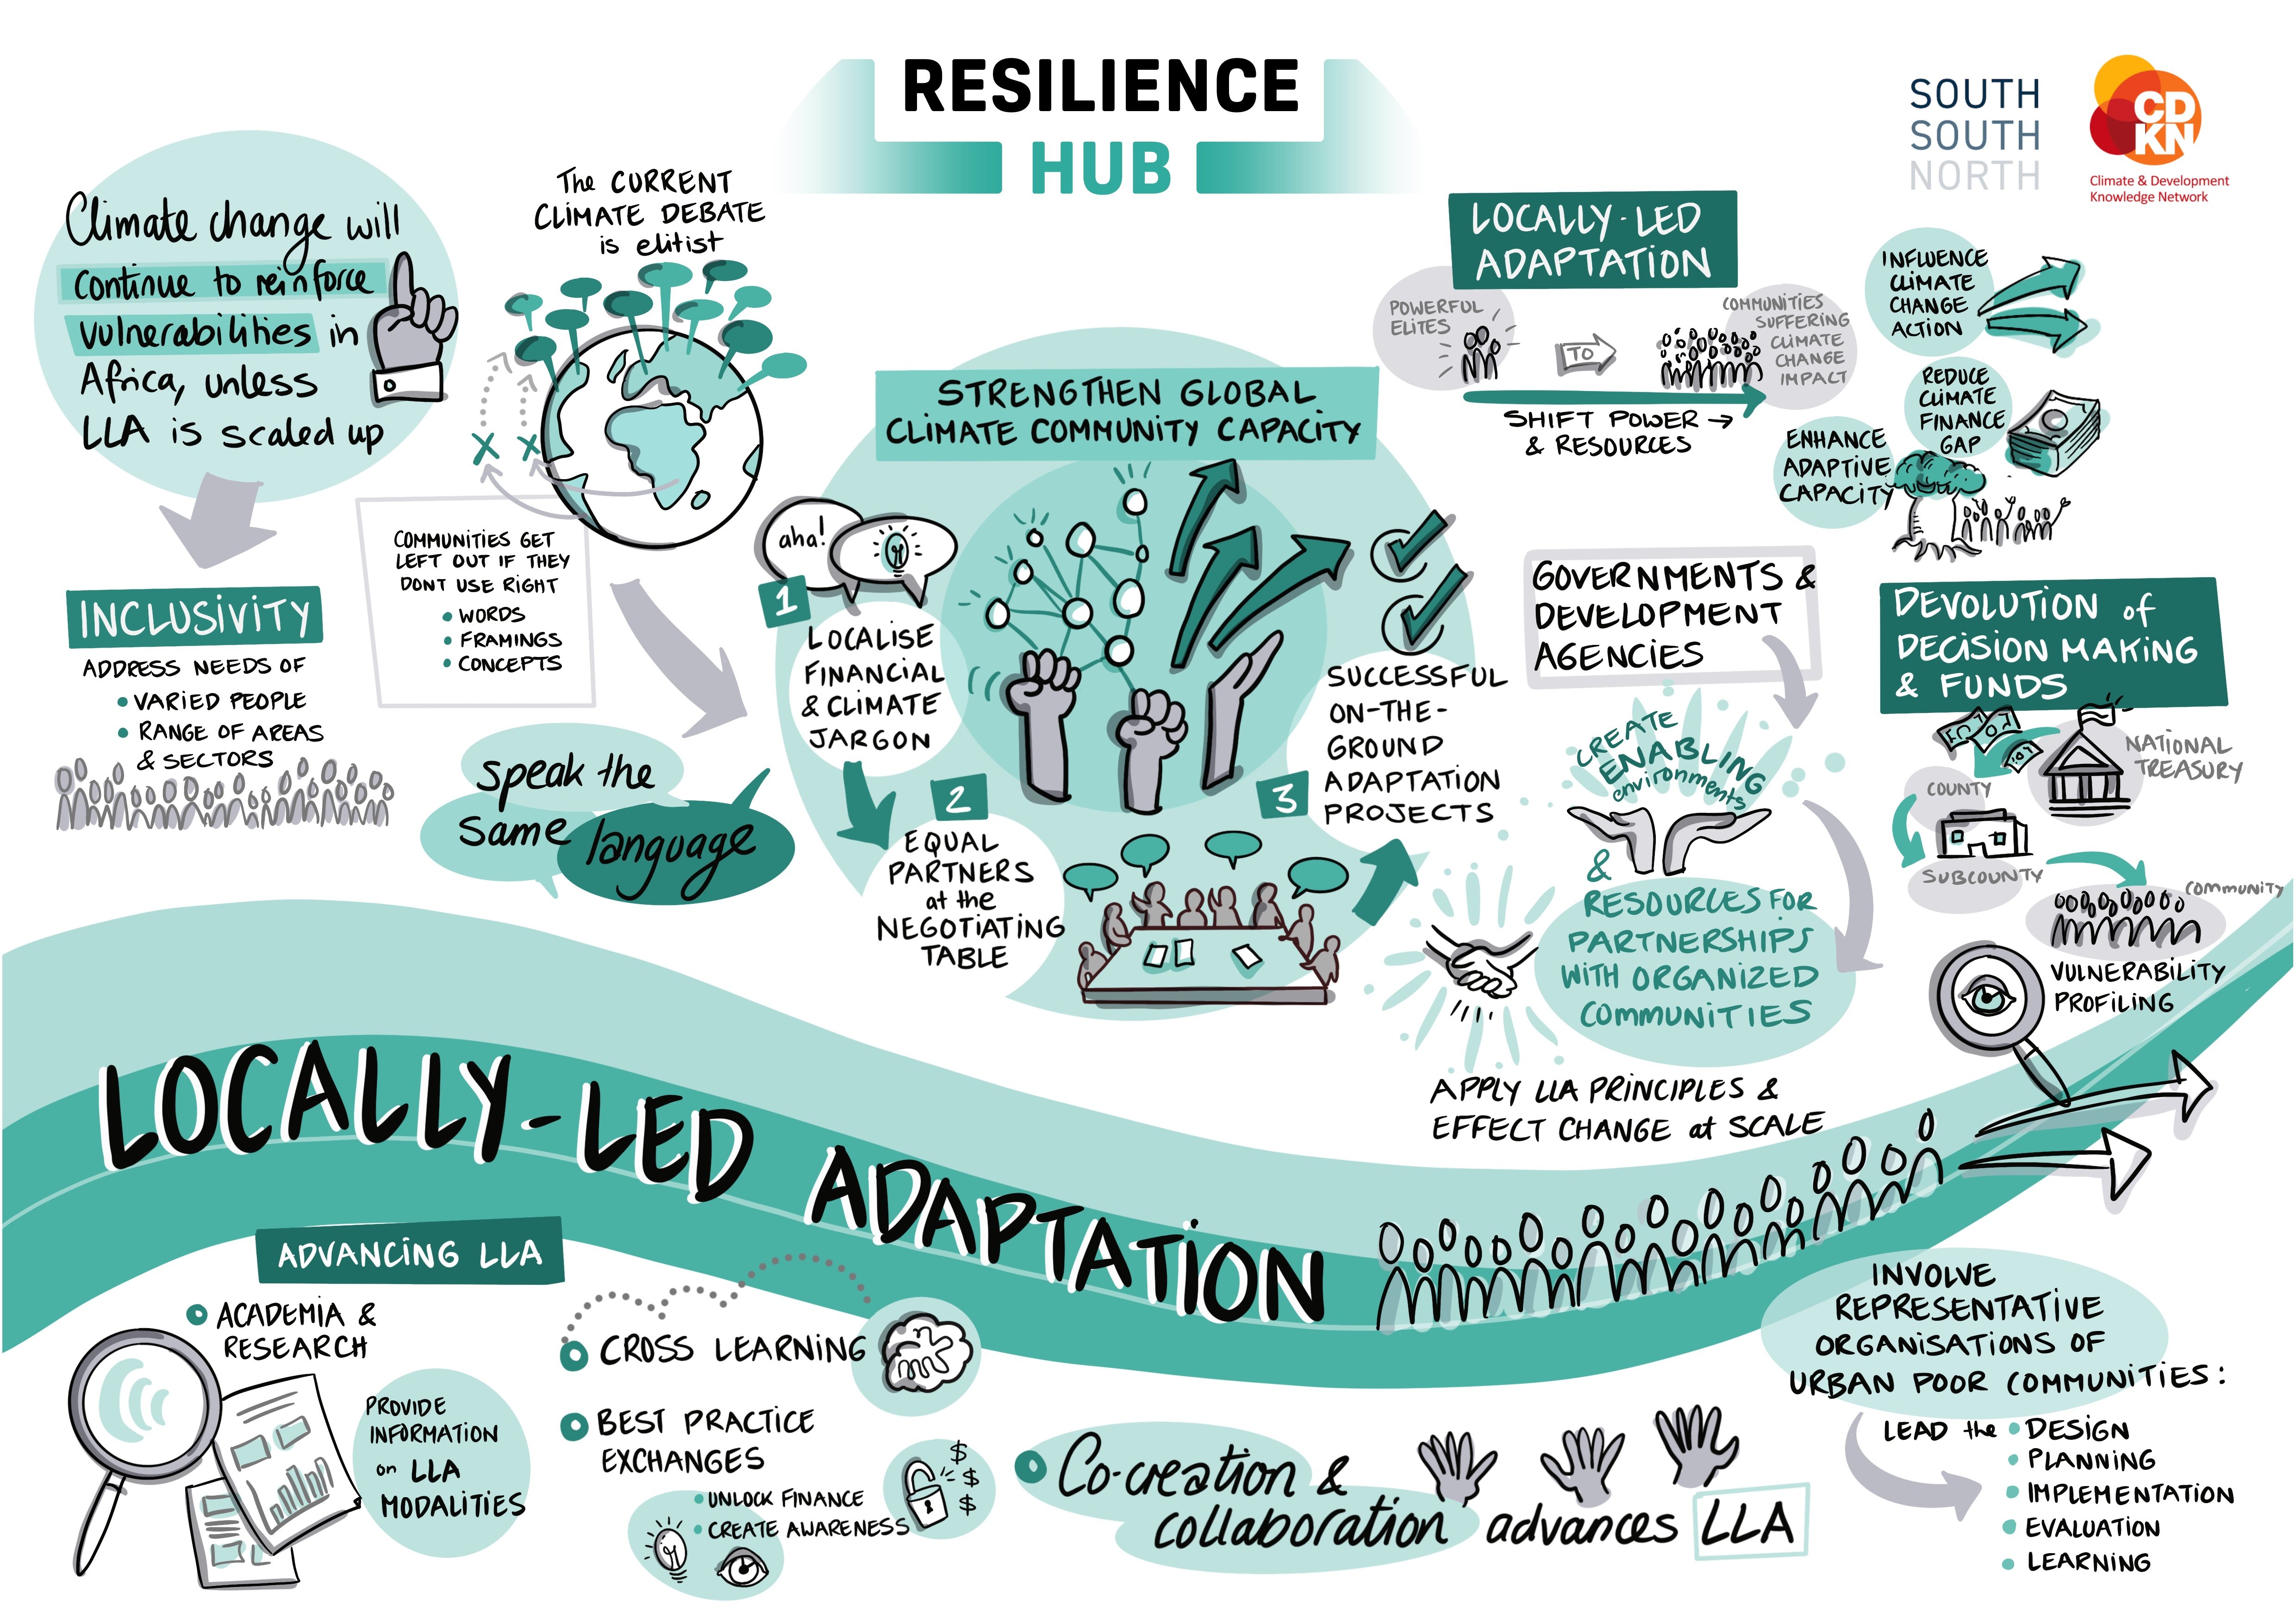 RESILIENCE
HUB
SOUTH
SOUTH
NORTH
CD
KN
Climate & Development
Knowledge Network
Climate change will
continue to reinforce
vulnerabilities in
Africa, unless
LLA is scaled up
INCLUSIVITY
ADDRESS NEEDS OF
• VARIED PEOPLE
• RANGE OF AREAS
& SECTORS
The CURRENT
CLIMATE DEBATE
is elitist
COMMUNITIES GET
LEFT OUT IF THEY
DONT USE RIGHT
• WORDS
• FRAMINGS
• CONCEPTS
speak the
same language
STRENGTHEN GLOBAL
CLIMATE COMMUNITY CAPACITY
aha!
1
LOCALISE
FINANCIAL
& CLIMATE
JARGON
2
EQUAL
PARTNERS
at the
NEGOTIATING
TABLE
3
SUCCESSFUL
ON-THE-
GROUND
ADAPTATION
PROJECTS
LOCALLY-LED
ADAPTATION
POWERFUL
ELITES
TO
COMMUNITIES
SUFFERING
CLIMATE
CHANGE
IMPACT
SHIFT POWER →
& RESOURCES
INFLUENCE
CLIMATE
CHANGE
ACTION
REDUCE
CLIMATE
FINANCE
GAP
ENHANCE
ADAPTIVE
CAPACITY
GOVERNMENTS &
DEVELOPMENT
AGENCIES
CREATE
ENABLING
environments
&
RESOURCES FOR
PARTNERSHIPS
WITH ORGANIZED
COMMUNITIES
APPLY LLA PRINCIPLES &
EFFECT CHANGE at SCALE
DEVOLUTION of
DECISION MAKING
& FUNDS
NATIONAL
TREASURY
COUNTY
SUBCOUNTY
COMMUNITY
VULNERABILITY
PROFILING
LOCALLY-LED ADAPTATION
ADVANCING LLA
ACADEMIA &
RESEARCH
PROVIDE
INFORMATION
on LLA
MODALITIES
CROSS LEARNING
BEST PRACTICE
EXCHANGES
• UNLOCK FINANCE
• CREATE AWARENESS
$
$
$
Co-creation &
collaboration advances LLA
INVOLVE
REPRESENTATIVE
ORGANISATIONS OF
URBAN POOR COMMUNITIES:
LEAD the • DESIGN
• PLANNING
• IMPLEMENTATION
• EVALUATION
• LEARNING